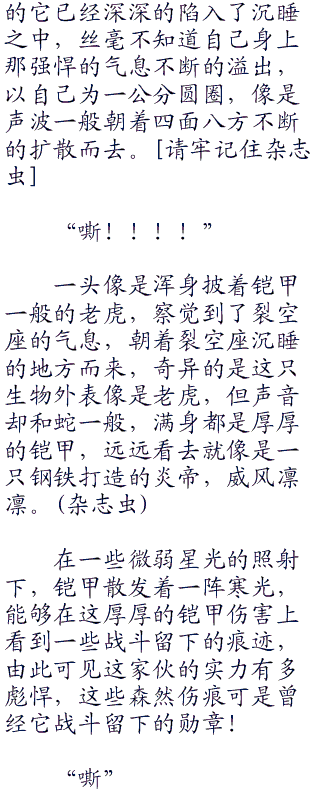 的它已经深深的陷入了沉睡
之中，丝毫不知道自己身上
那强悍的气息不断的溢出，
以自己为一公分圆圈，像是
声波一般朝着四面八方不断
的扩散而去。[请牢记住杂志
虫]
“嘶！！！！”
一头像是浑身披着铠甲
一般的老虎，察觉到了裂空
座的气息，朝着裂空座沉睡
的地方而来，奇异的是这只
生物外表像是老虎，但声音
却和蛇一般，满身都是厚厚
的铠甲，远远看去就像是一
只钢铁打造的炎帝，威风凛
凛。(杂志虫)
在一些微弱星光的照射
下，铠甲散发着一阵寒光，
能够在这厚厚的铠甲伤害上
看到一些战斗留下的痕迹，
由此可见这家伙的实力有多
彪悍，这些森然伤痕可是曾
经它战斗留下的勋章！
“嘶”